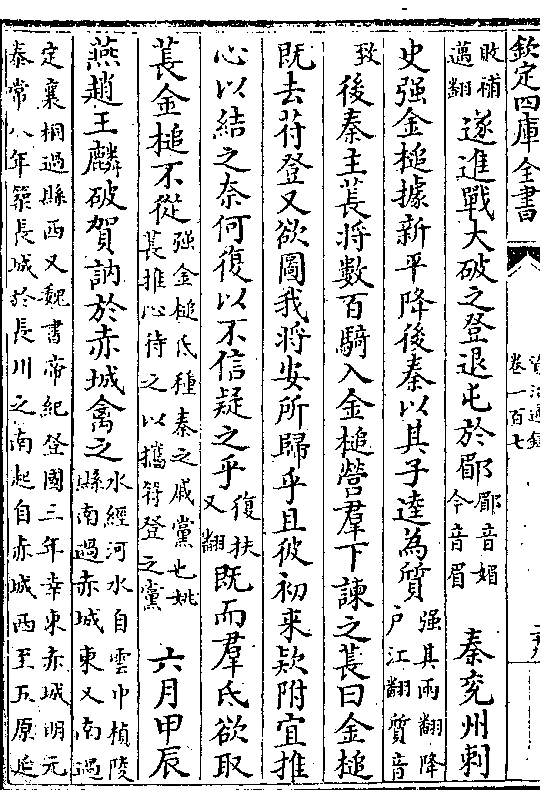 欽定四庫全書
資治通鑑
卷一百七
敗補
邁翻
遂進戰大破之登退屯於郿
郿音媚
今音眉
秦兗州刺
史强金槌據新平降後秦以其子逵為質
强其兩翻降
户江翻質音
致
後秦主萇將數百騎入金槌營羣下諫之萇曰金槌
既去苻登又欲圖我將安所歸乎且彼初來欵附宜推
心以結之奈何復以不信疑之乎
復扶
又翻
既而羣氐欲取
萇金槌不從
强金槌氐種秦之戚黨也姚
萇推心待之以攜苻登之黨
六月甲辰
燕趙王麟破賀訥於赤城禽之
水經河水自雲巾楨陵
縣南過赤城東又南過
定襄桐過縣西又魏書帝紀登國三年幸東赤城明元
泰常八年築長城於長川之南起自赤城西至五原延